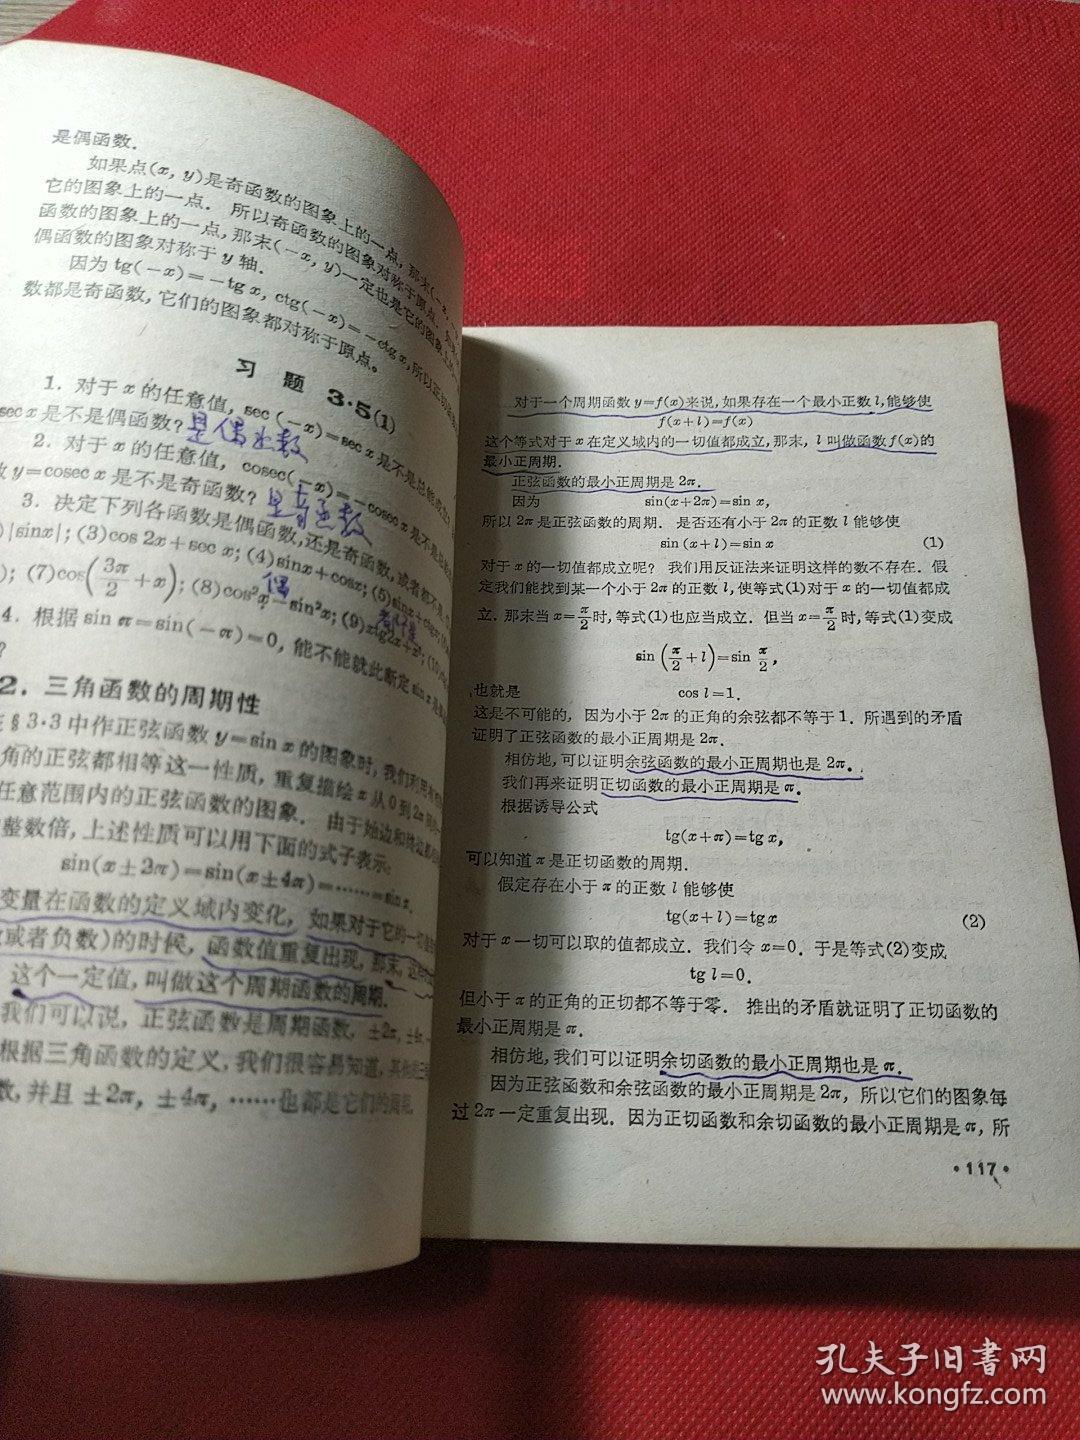 是偶函数．
如果点(x, y)是奇函数的图象上的一点, 那末(－x,
它的图象上的一点． 所以奇函数的图象对称于原点．
函数的图象上的一点, 那末(－x, y)一定也是它的图象上的一
偶函数的图象对称于 y 轴．
因为 tg(－x)＝－tg x, ctg(－x)＝－ctg x, 所以正切函
数都是奇函数, 它们的图象都对称于原点。
习 题 3·5(1)
1. 对于 x 的任意值, sec (－x)＝sec x 是不是总能成立?
sec x 是不是偶函数? 是偶函数
2. 对于 x 的任意值, cosec(－x)＝－cosec x 是不是总能
数 y＝cosec x 是不是奇函数? 是奇函数
3. 决定下列各函数是偶函数, 还是奇函数, 或者都不是．
)|sinx|; (3)cos 2x＋sec x; (4)sinx＋cosx; (5)sinx＋ctgx;
); (7)cos(3π/2＋x); (8)cos²x－sin²x; (9)xtg2x＋x⁴;
偶
4. 根据 sin π＝sin(－π)＝0, 能不能就此断定 sin x 是
?
2. 三角函数的周期性
§ 3·3 中作正弦函数 y＝sin x 的图象时, 我们利用
角的正弦都相等这一性质, 重复描绘 x 从 0 到 2π
任意范围内的正弦函数的图象． 由于始边和终边
整数倍, 上述性质可以用下面的式子表示:
sin(x±2π)＝sin(x±4π)＝……＝sin x.
变量在函数的定义域内变化, 如果对于它的一切
或者负数)的时候, 函数值重复出现, 那末,
这个一定值, 叫做这个周期函数的周期．
我们可以说, 正弦函数是周期函数, ±2π, ±4π
根据三角函数的定义, 我们很容易知道, 其
数, 并且 ±2π, ±4π, ……也都是它们的周期.
对于一个周期函数 y＝f(x)来说, 如果存在一个最小正数 l, 能够使
f(x＋l)＝f(x)
这个等式对于 x 在定义域内的一切值都成立, 那末, l 叫做函数 f(x)的
最小正周期．
正弦函数的最小正周期是 2π．
因为 sin(x＋2π)＝sin x,
所以 2π 是正弦函数的周期． 是否还有小于 2π 的正数 l 能够使
sin (x＋l)＝sin x (1)
对于 x 的一切值都成立呢? 我们用反证法来证明这样的数不存在． 假
定我们能找到某一个小于 2π 的正数 l, 使等式(1)对于 x 的一切值都成
立．那末当 x＝π/2 时, 等式(1)也应当成立． 但当 x＝π/2 时, 等式(1)变成
sin (π/2＋l)＝sin π/2,
也就是 cos l＝1.
这是不可能的, 因为小于 2π 的正角的余弦都不等于 1．所遇到的矛盾
证明了正弦函数的最小正周期是 2π．
相仿地, 可以证明余弦函数的最小正周期也是 2π．
我们再来证明正切函数的最小正周期是 π．
根据诱导公式
tg(x＋π)＝tg x,
可以知道 π 是正切函数的周期．
假定存在小于 π 的正数 l 能够使
tg(x＋l)＝tg x (2)
对于 x 一切可以取的值都成立．我们令 x＝0．于是等式(2)变成
tg l＝0.
但小于 π 的正角的正切都不等于零． 推出的矛盾就证明了正切函数的
最小正周期是 π．
相仿地, 我们可以证明余切函数的最小正周期也是 π．
因为正弦函数和余弦函数的最小正周期是 2π, 所以它们的图象每
过 2π 一定重复出现．因为正切函数和余切函数的最小正周期是 π, 所
·117·
孔夫子旧书网
www.kongfz.com